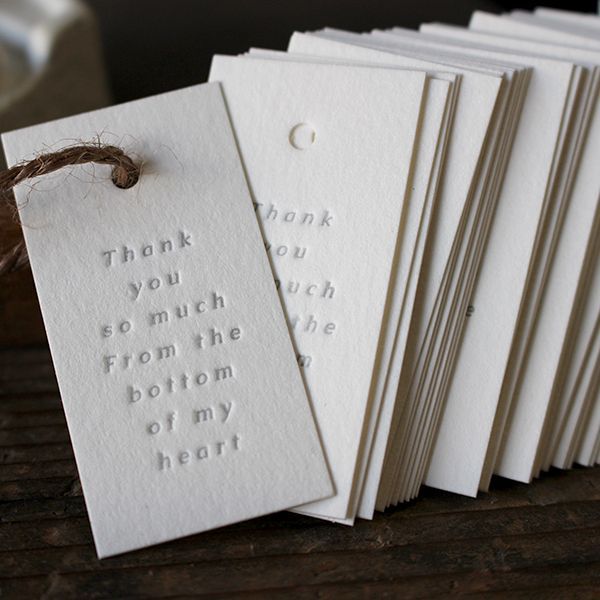 Thank
you
so much
From the
bottom
of my
heart
Thank
you
much
the